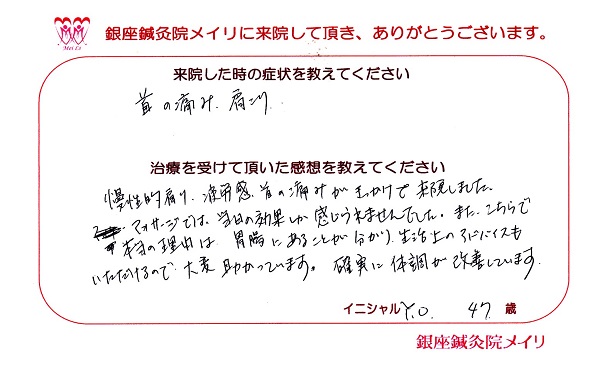 Mei Le
銀座鍼灸院メイリに来院して頂き、ありがとうございます。
来院した時の症状を教えてください
首の痛み、肩こり
治療を受けて頂いた感想を教えてください
慢性的肩こり、疲労感、首の痛みがきっかけで来院しました。
マッサージでは、当日の効果しか感じられませんでした。また、こちらで
本当の理由は胃腸にあることが分かり、生活上のアドバイスも
いただけるので大変助かっています。確実に体調が改善しています。
イニシャル Y.O. 47 歳
銀座鍼灸院メイリ